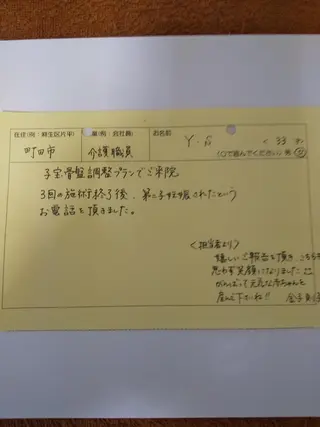 住莊(例:麻生区片平) 職(例:会社員) お名前
町田市 介護職員 Y・G く 33 才
(○で囲んでください) 男 女
子宝骨盤調整プランでご来院。
3回の施術終了後、第二子妊娠されたという
お電話を頂きました。
<担当者より>
嬉しいご報告を頂き、こちらも
思わず笑顔になりました
がんばって元気な赤ちゃんを
産んで下さいね!!